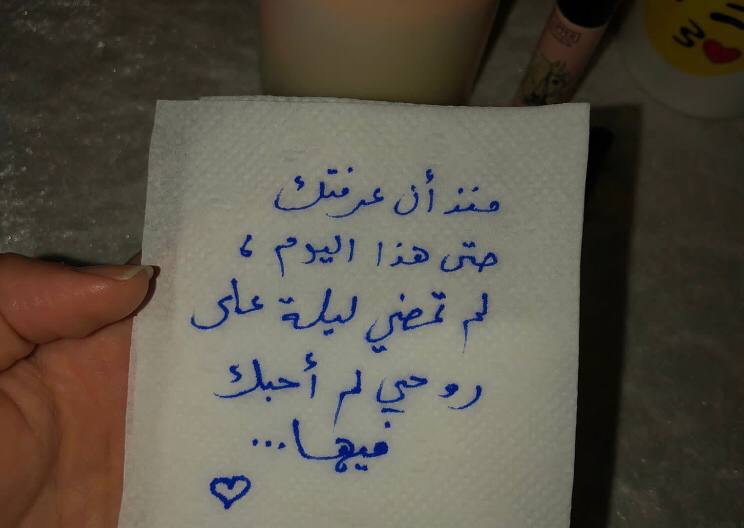 منذ أن عرفتك
حتى هذا اليوم ،
لم تمضي ليلة على
روحي لم أحبك
فيها...